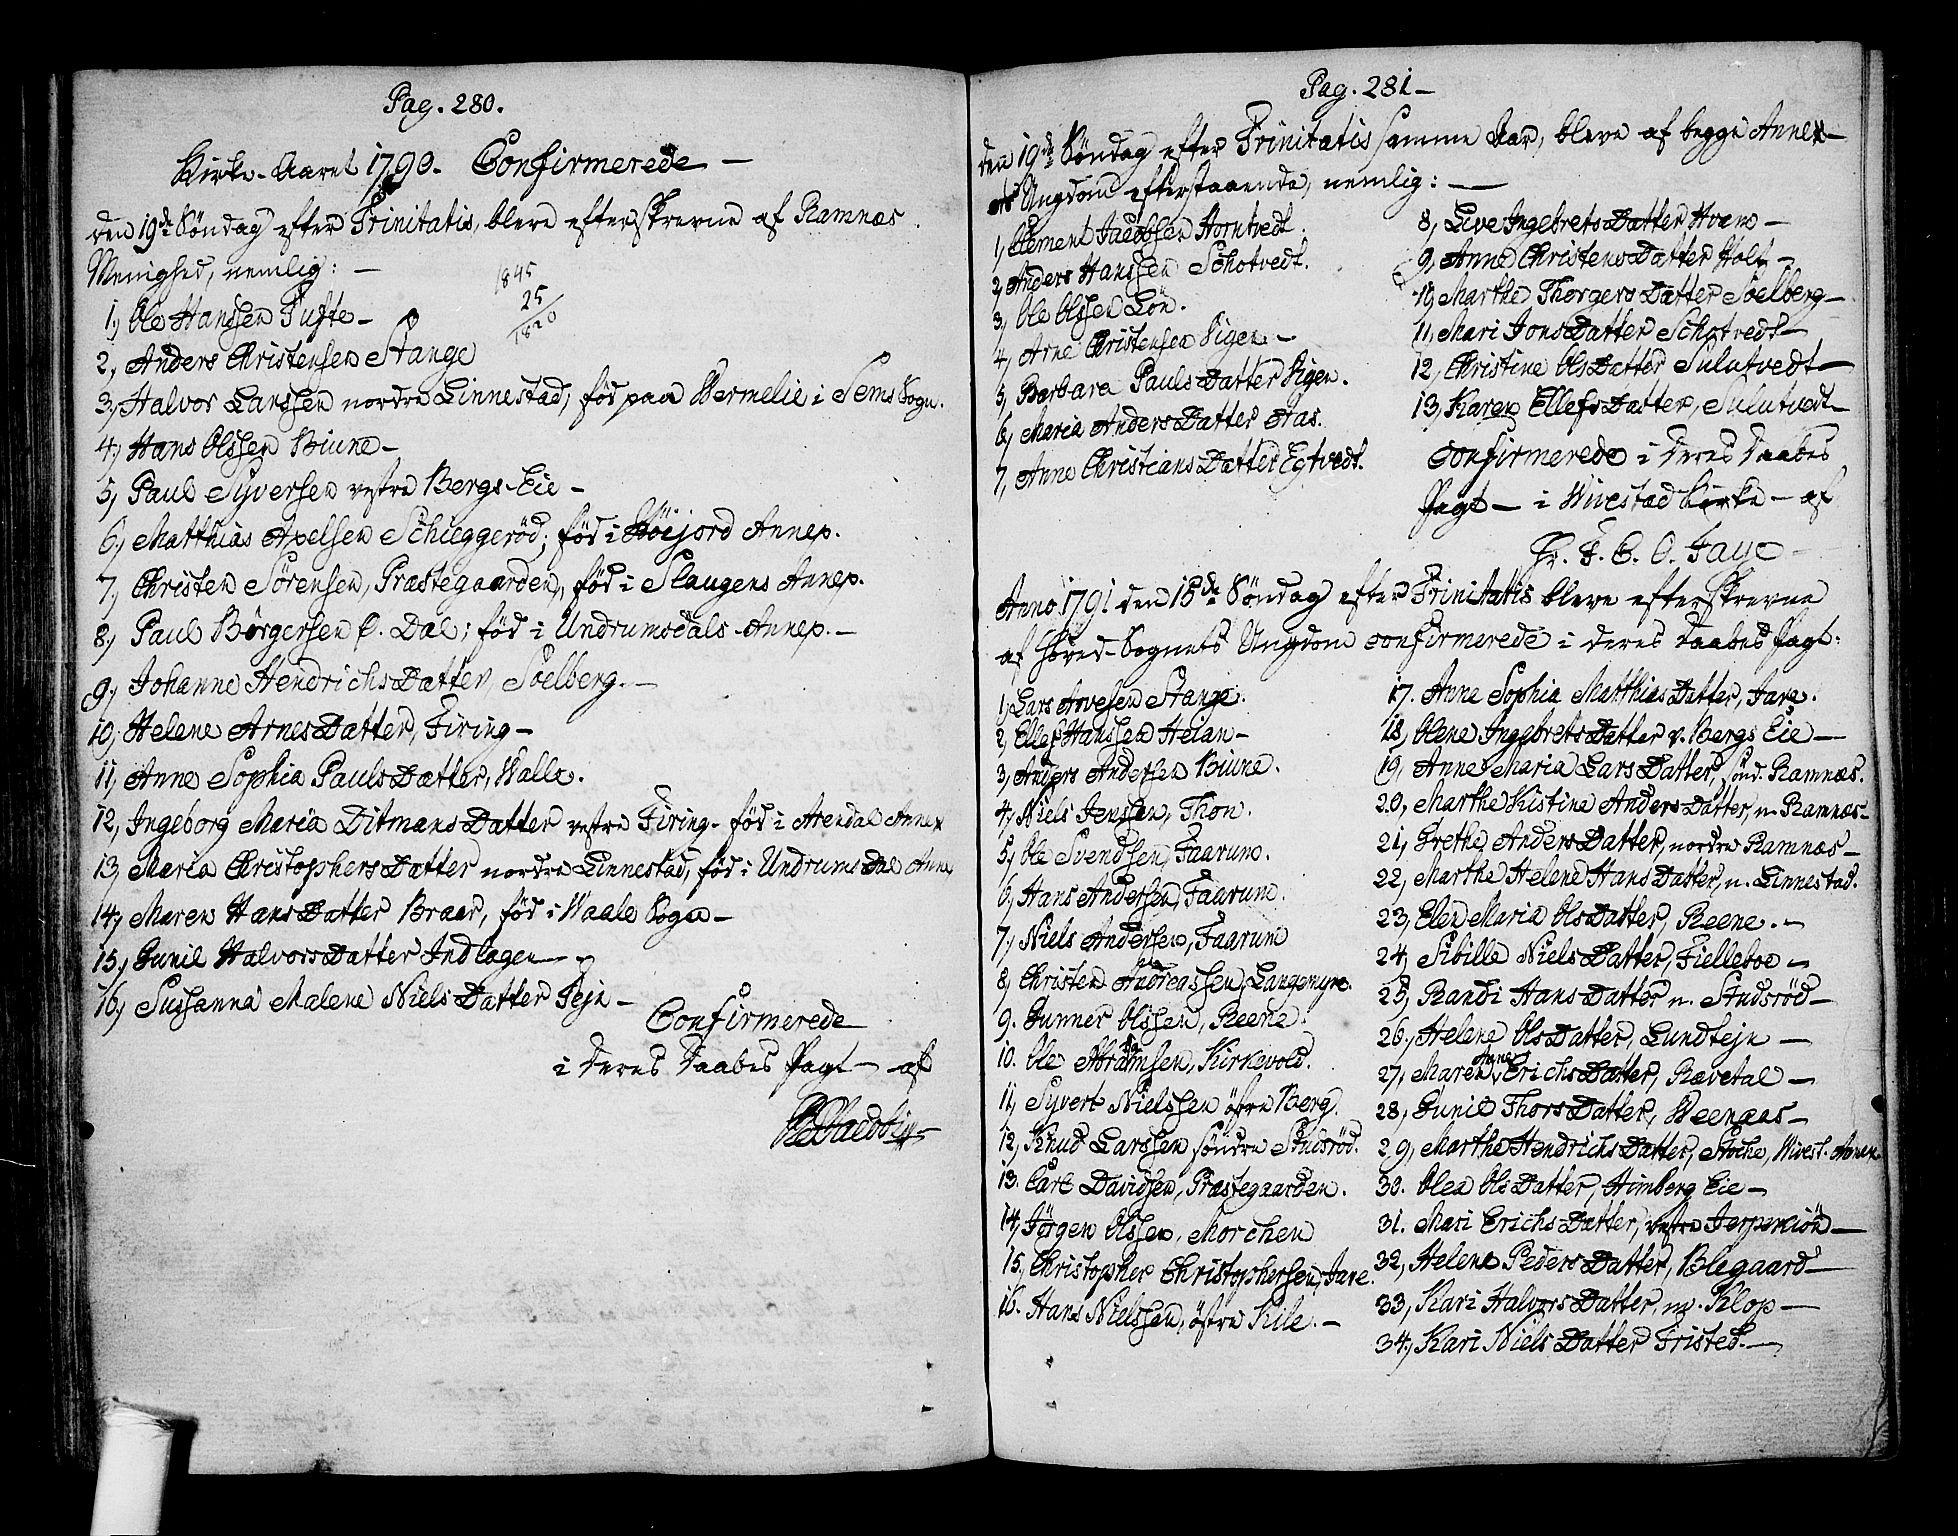 Pag. 280.
Kirke-Aaret 1790. Confirmerede —
den 19de Söndag efter Trinitatis, bleve efterskrevne af Ramnæs
Menighed, nemlig: —
1845
25
1820
1, Ole Hanssen Tufte —
2, Anders Christensen Stange
3, Halvor Larssen nordre Linnestad, föd paa Bermelie i Sems Sogn.
4, Hans Olssen Biune —
5, Paul Syversen vestre Bergs-Eie —
6, Matthias Axelsen Schieggeröd, föd i Höijord Annex.
7, Christen Sörensen, Præstegaarden, föd i Slaugens Annex.
8, Paul Börgersen Dal; föd i Undrumsdals-Annex. —
9, Johanne HendrichsDatter, Soelberg. —
10, Helene ArnesDatter, Firing —
11, Anne Sophia PaulsDatter, Walle.
12, Ingeborg Maria DitmansDatter vestre Firing — föd i Arendal Annex
13, Maria ChristophersDatter nordre Linnestad, föd i UndrumsDal Annex
14, Maren HansDatter Braar, föd i Waale Sogn —
15, Gunil HalvorsDatter Indlagen —
16, Sussanna Malene NielsDatter Fejn —
Confirmerede
i deres Daabes Pagt — af
Pag. 281 —
den 19de Söndag efter Trinitatis samme Aar, bleve af begge Annex-
ets Ungdom efterstaaende, nemlig: —
1, Clement Jacobsen Horntvedt.
2, Anders Hanssen Schotvedt.
3, Ole Olssen Lön.
4, Arne Christensen Rigen —
5, Barbara PaulsDatter Rigen.
6, Maria AndersDatter Aas.
7, Anne ChristiansDatter Egtvedt.
8, Live IngebretsDatter Hvam —
9, Anne ChristensDatter Holt —
10, Marthe ThorgersDatter Soelberg —
11, Mari JonsDatter Schotvedt —
12, Christine OlsDatter Sulutvedt —
13, Karen EllefsDatter, Sulutvedt —
Confirmerede i deres Daabes
Pagt — i Wivestad Kirke — af
Hr. F. C. O. Faye —
Anno 1791 den 18de Söndag efter Trinitatis bleve efterskrevne
af Hoved-Sognets Ungdom confirmerede i deres Daabes Pagt:
1, Lars Arvesen Stange.
2, Ellef Hanssen Heian —
3, Anders Andersen Biune.
4, Niels Jenssen, Thon.
5, Ole Svendsen, Faarum.
6, Hans Andersen, Faarum.
7, Niels Andersen, Faarum
8, Christen Andreassen, Langemyre.
9. Gunner Olssen, Reene.
10. Ole Abramsen, Kirkevold.
11, Syvert Nielssen östre Berg.
12, Knud Larssen söndre Studsröd.
13. Carl Davidsen, Præstegaarden.
14, Jörgen Olssen, Morchen
15, Christopher Christophersen, Jare.
16. Hans Nielssen, östre Kile. —
17. Anne Sophia MatthiasDatter, Jare.
18, Olene IngebretsDatter v. Bergs Eie —
19, Anne Maria LarsDatter, sönd. Ramnæs.
20, Marthe Kistine AndersDatter, n. Ramnæs —
21, Grethe AndersDatter, nordre Ramnæs —
22, Marthe Helene HansDatter, n. Linnestad.
23, Elen Maria OlsDatter, Reene. —
24, Sibille NielsDatter, Fielleboe —
25, Randi HansDatter n. Studsröd —
26, Helene OlsDatter, Lundtejn —
27, Maren Anne ErichsDatter, Rævetal —
28, Gunil ThorsDatter, Weenaas —
29, Marthe HendrichsDatter, Stoche, Wivest. Annex
30. Olea OlsDatter, Himberg Eie —
31. Mari ErichsDatter, vestre Jerpeniön —
32, Helene PedersDatter, Blegaard —
33, Kari HalvorsDatter, m. Klop —
34, Kari NielsDatter Fristed. —